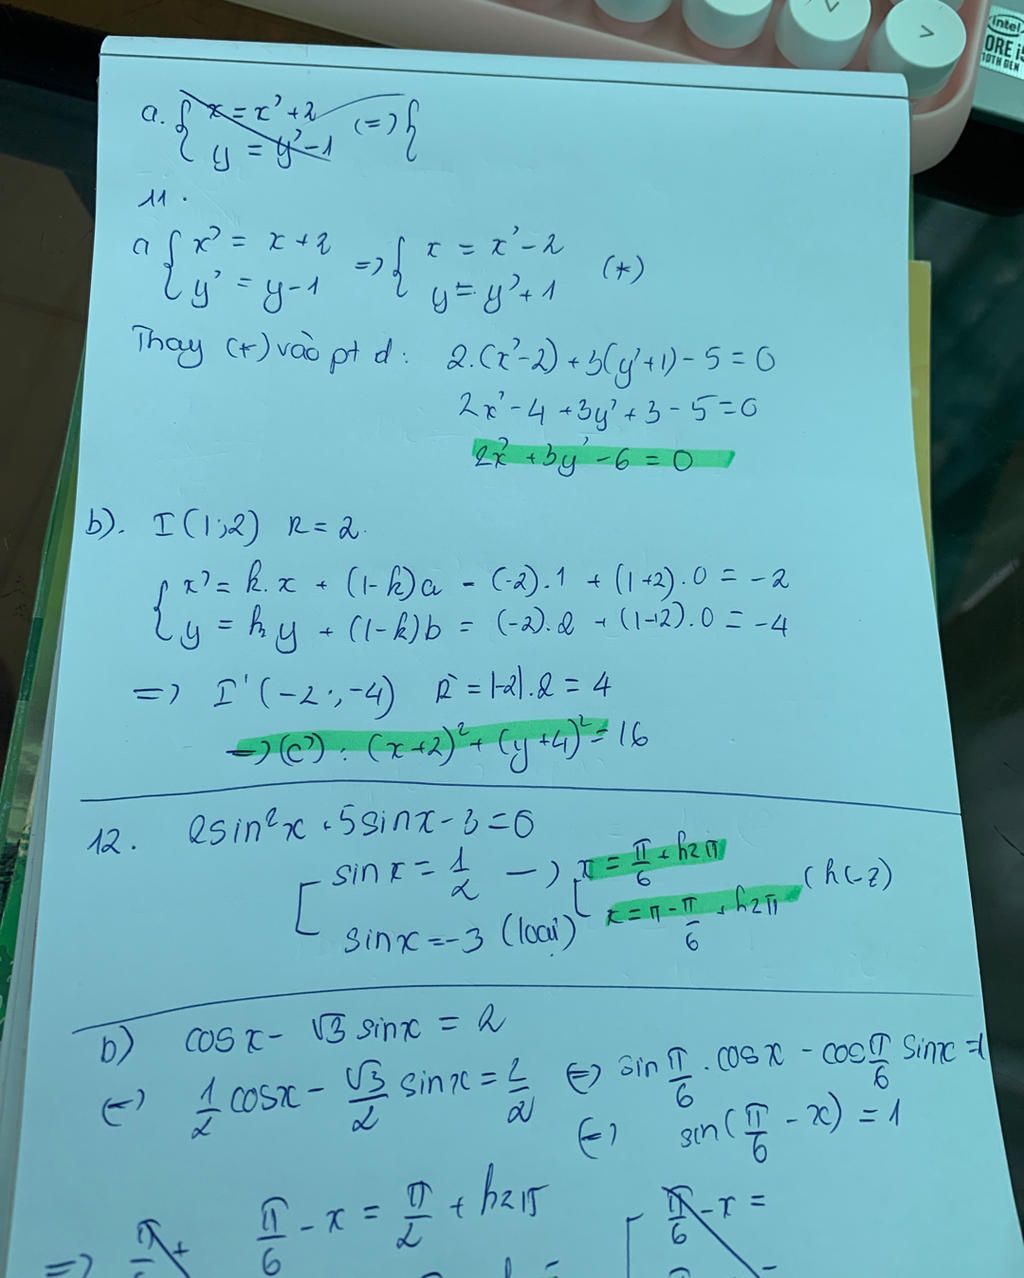 intel
ORE i5
10TH GEN
a. { x = x' + 2
y = y' - 1 (=) {
11.
a { x' = x + 2
y' = y - 1 => { x = x' - 2
y = y' + 1 (*)
Thay (*) vào pt d: 2.(x'-2) + 3(y'+1) - 5 = 0
2x' - 4 + 3y' + 3 - 5 = 0
2x' + 3y' - 6 = 0
b). I(1;2) R = 2.
{ x' = k.x + (1-k)a = (-2).1 + (1+2).0 = -2
y = ky + (1-k)b = (-2).2 + (1+2).0 = -4
=> I'(-2;-4) R' = |-2|.2 = 4
=> (C'): (x+2)² + (y+4)² = 16
12. 2sin²x + 5sinx - 3 = 0
[ sinx = 1/2 -> [ x = π/6 + k2π
x = π - π/6 + k2π (k∈Z)
sinx = -3 (loại)
b) cosx - √3 sinx = 2
(=) 1/2 cosx - √3/2 sinx = 2/2 (=) sin π/6 . cosx - cos π/6 sinx = 1
(=) sin(π/6 - x) = 1
=> π/6 - x = π/2 + k2π [ π/6 - x =